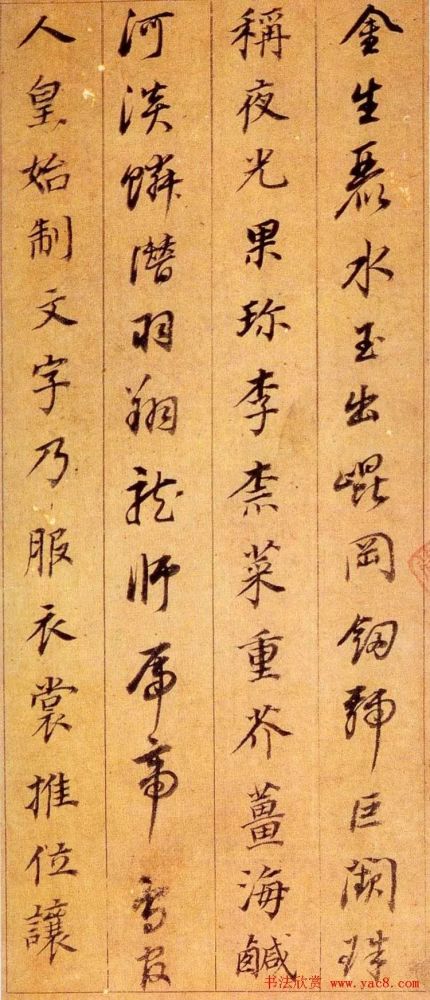 金生麗水玉出崐岡釼號巨闕珠
稱夜光果珎李柰菜重芥薑海鹹
河淡鱗潛羽翔龍師帝鳥官
人皇始制文字乃服衣裳推位讓
书法欣赏 www.yac8.com